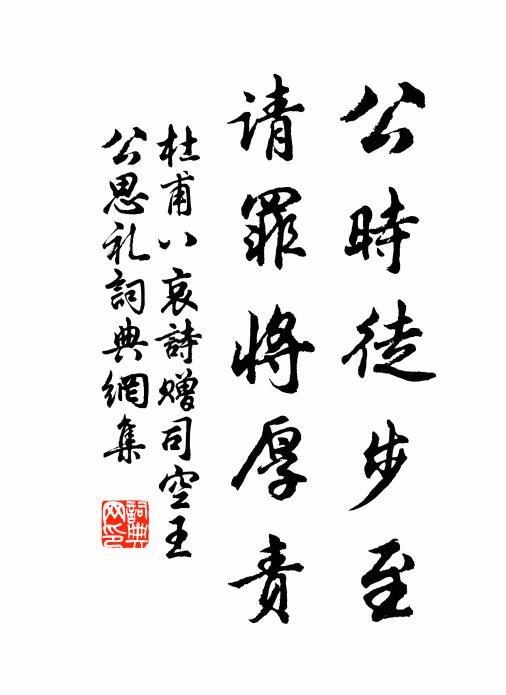 公時徒步至
请罪将厚责
杜甫八哀詩赠司空王
公思礼詞典網集
詞典网印